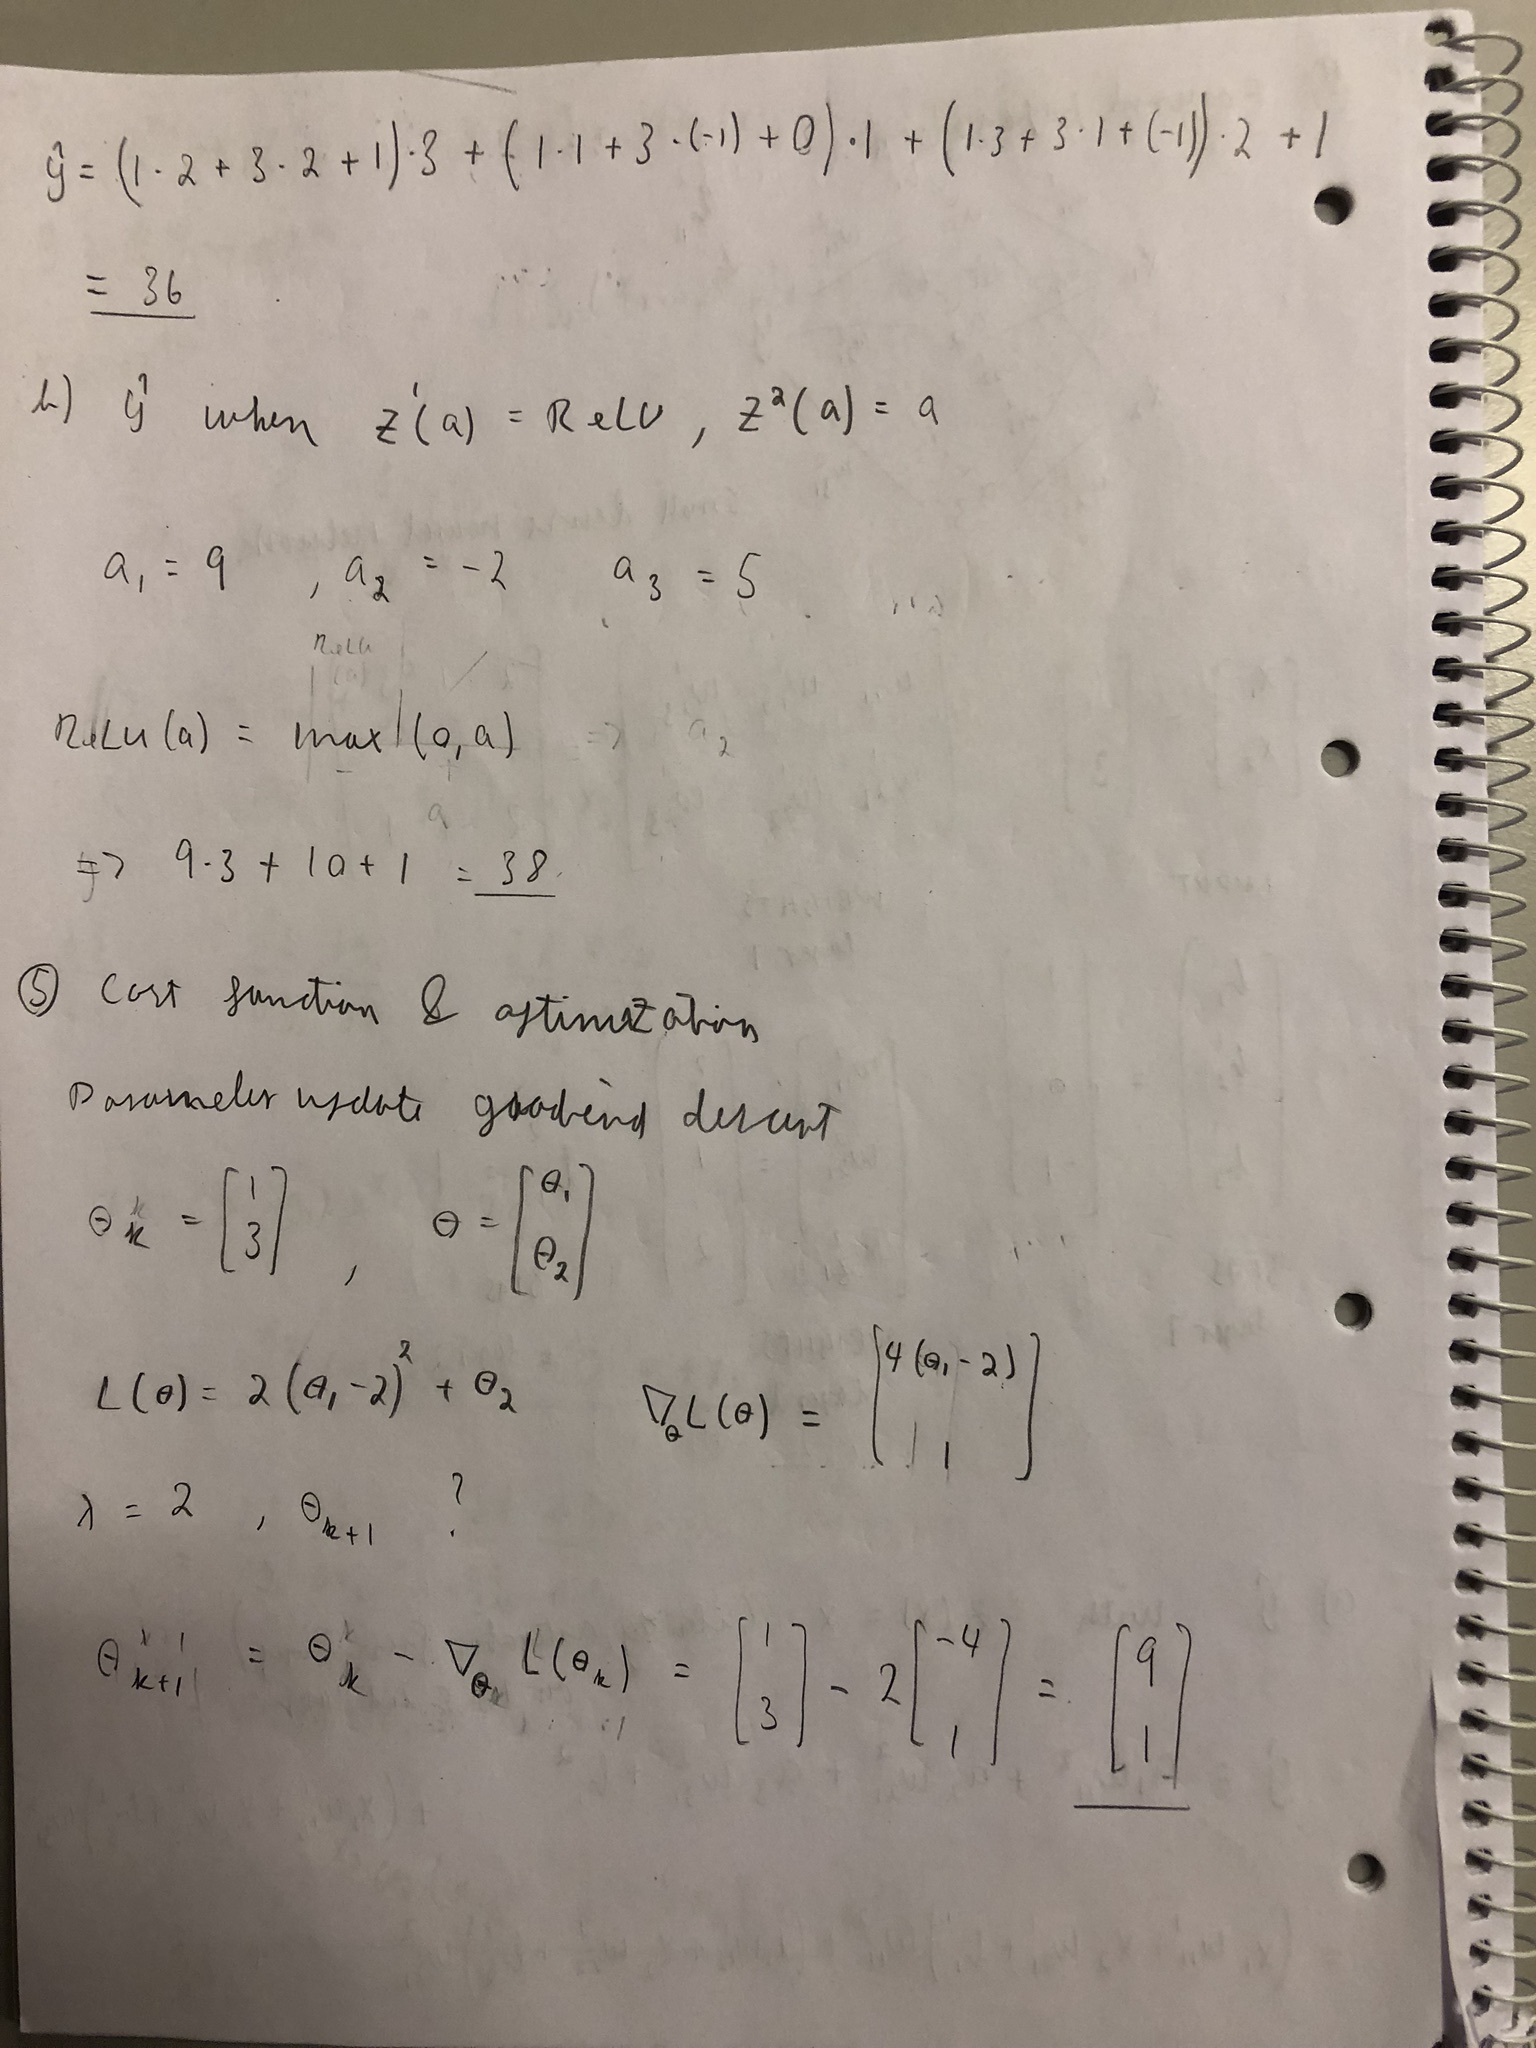 ŷ = (1·2 + 3·2 + 1)·3 + (1·1 + 3·(-1) + 0)·1 + (1·3 + 3·1 + (-1))·2 + 1
= 36
b) ŷ when z¹(a) = ReLU, z²(a) = a
a₁ = 9 , a₂ = -2 a₃ = 5
ReLU(a) = max(0, a)
=> 9·3 + 10 + 1 = 38
⑤ Cost function & optimization
Parameter update gradient descent
θₖ = [1 3] , θ = [θ₁ θ₂]
L(θ) = 2(θ₁-2)² + θ₂ ∇_θ L(θ) = [4(θ₁-2) 1]
λ = 2 , θₖ₊₁ ?
θₖ₊₁ = θₖ - ∇_θ L(θₖ) = [1 3] - 2[-4 1] = [9 1]